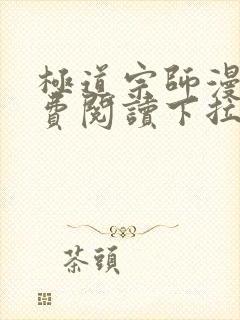 極道宗師漫
費閱讀下拉
茶頭